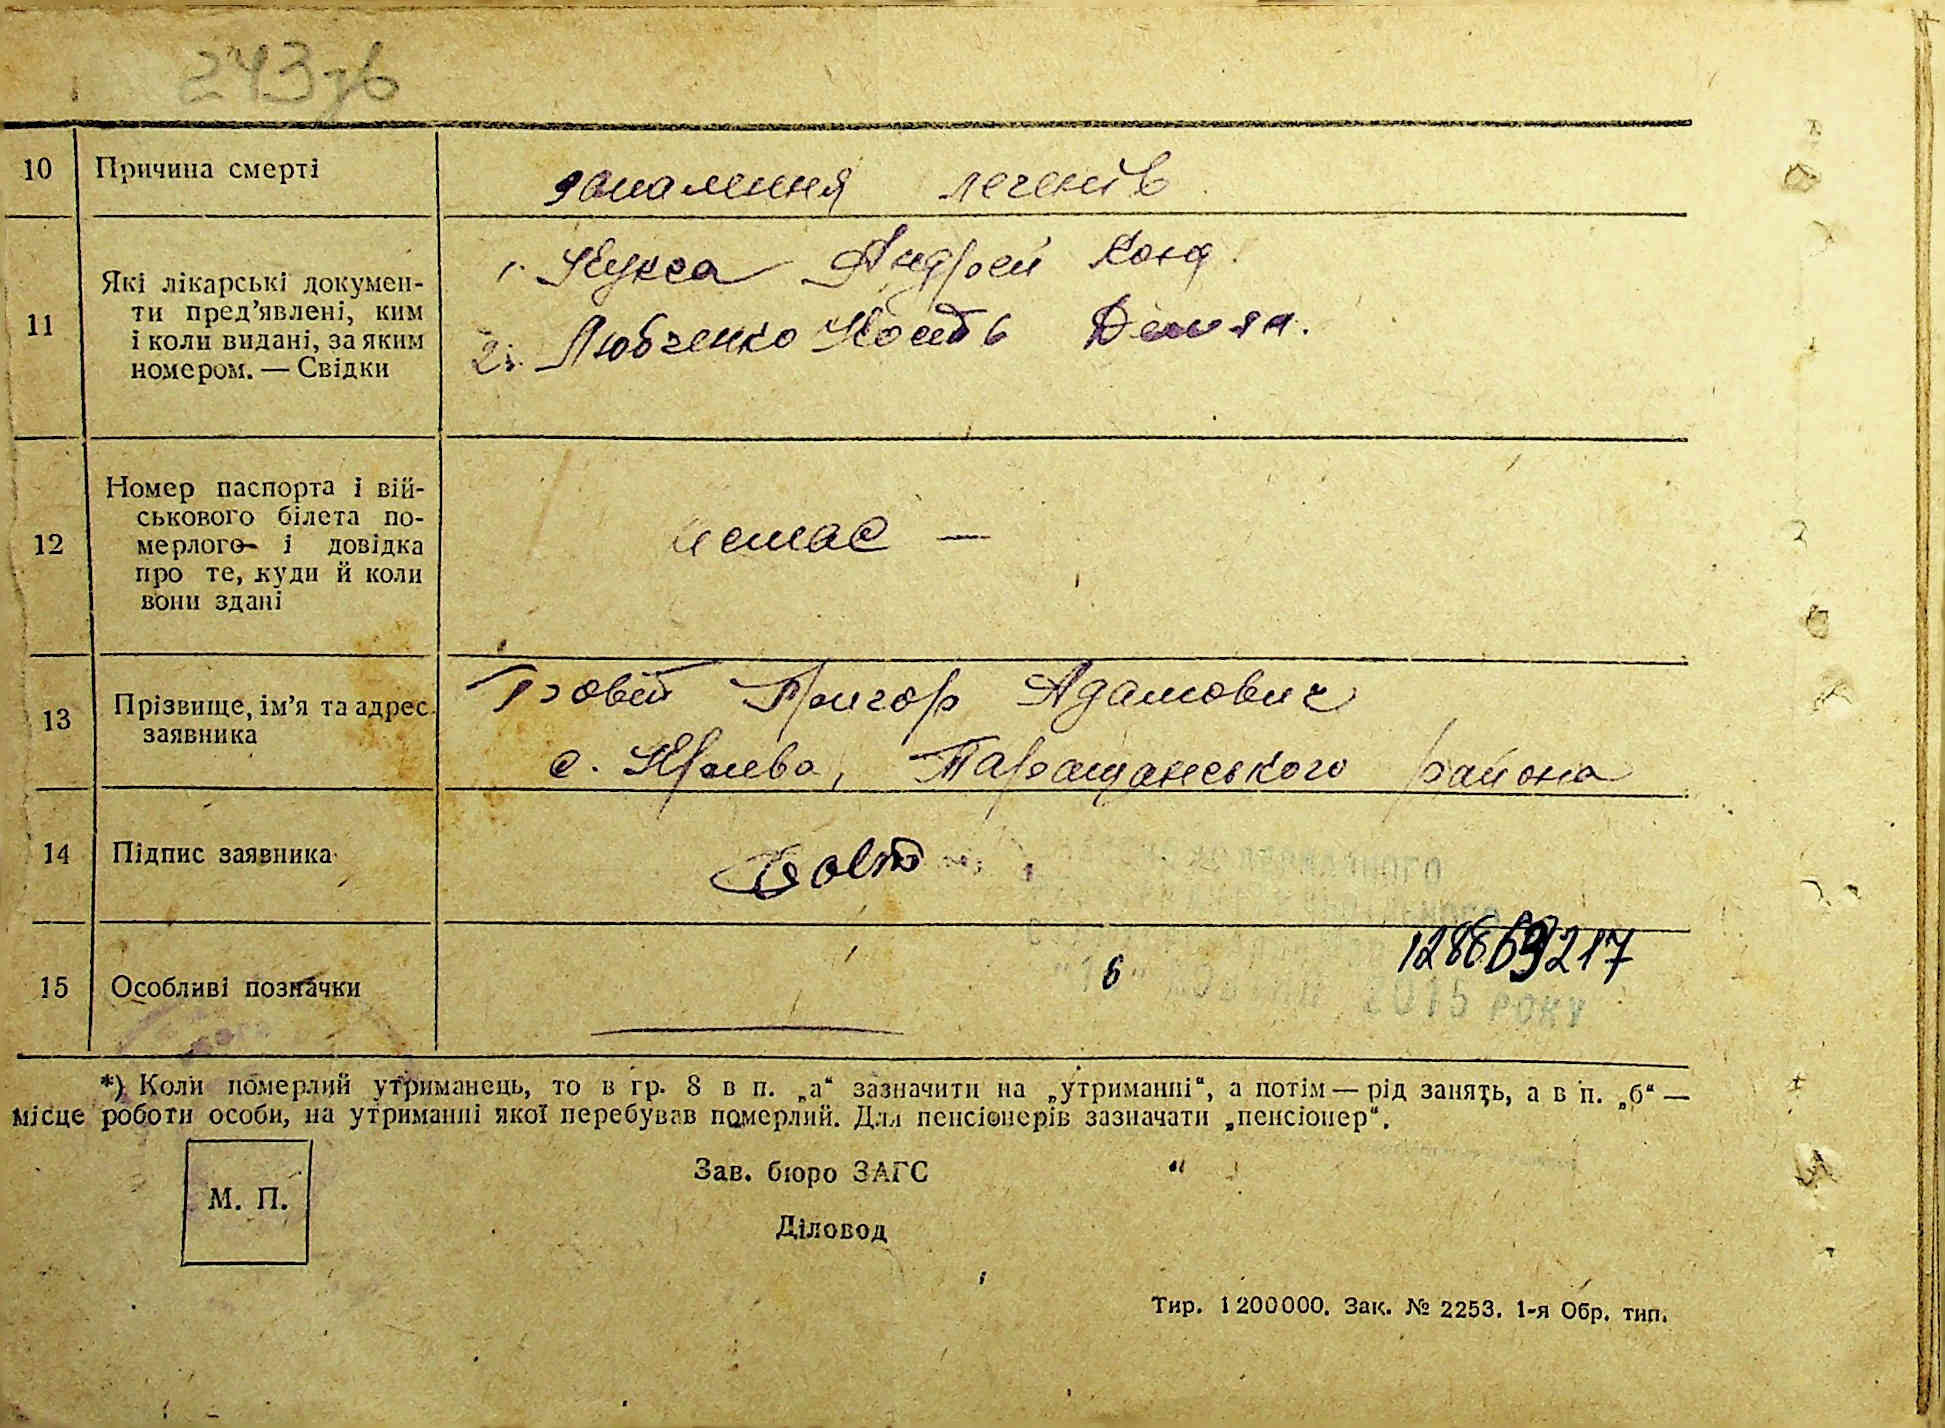 243зв
10 Причина смерті
запалення легенів
11 Які лікарські докумен-
ти пред’явлені, ким
і коли видані, за яким
номером. — Свідки
1. Кукса Андрей Конд.
2. Любченко Кость Демян.
12 Номер паспорта і вій-
ськового білета по-
мерлого і довідка
про те, куди й коли
вони здані
немає —
13 Прізвище, ім’я та адрес
заявника
Григор Адамович
с. Таращанського района
14 Підпис заявника
15 Особливі позначки
6
2015 РОКУ
*) Коли померлий утриманець, то в гр. 8 в п. „а“ зазначити на „утриманні“, а потім — рід занять, а в п. „б“ —
місце роботи особи, на утриманні якої перебував померлий. Для пенсіонерів зазначати „пенсіонер“.
М. П.
Зав. бюро ЗАГС
Діловод
Тир. 1200000. Зак. № 2253. 1-я Обр. тип.